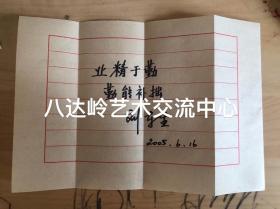 业精于勤
勤能补拙
八达岭艺术交流中心
2005.6.16